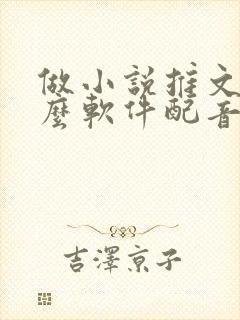 做小說推文
麼軟件配音
吉澤京子